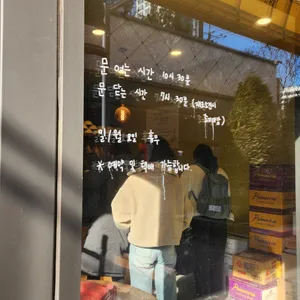 문 여는 시간 10시 30분
문 닫는 시간 7시 30분 (재료소진시
마감)
일/월 요일 휴무
* 예약 및 택배 가능합니다.